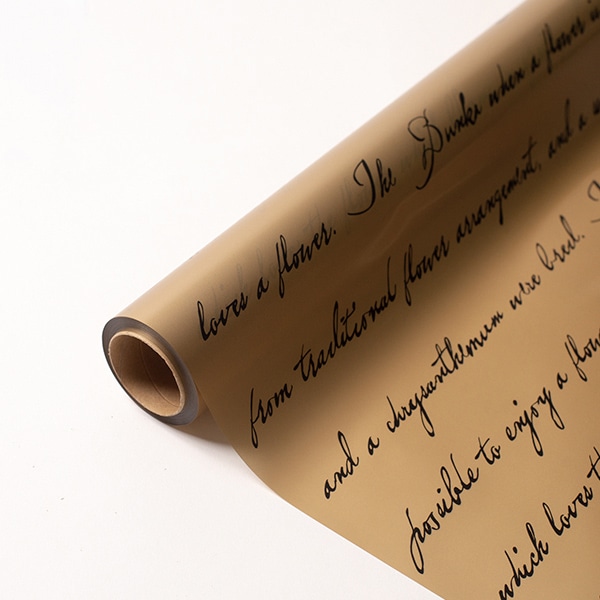 loves a flower. The Bunka when a flower is
from traditional flower arrangement, and a
and a chrysanthemum were bred.
possible to enjoy a flow
which loves th